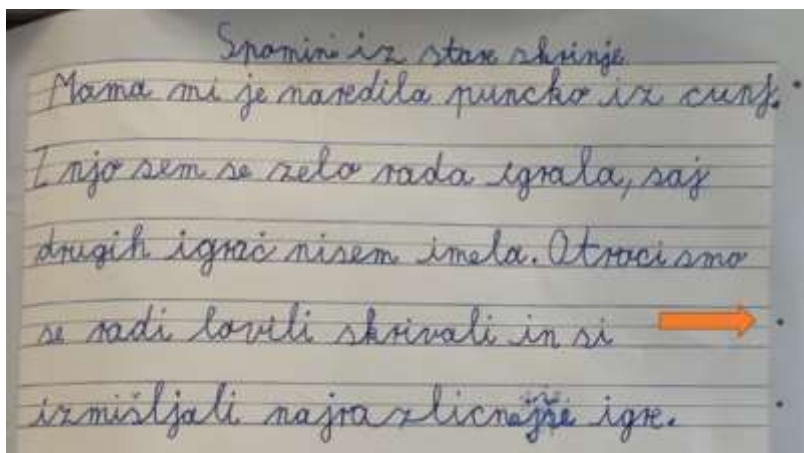 Spomini iz stare skrinje
Mama mi je naredila puncko iz cunj.
Z njo sem se zelo rada igrala, saj
drugih igrač nisem imela. Otroci smo
se radi lovili skrivali in si
izmišljali najrazlicnejše igre.